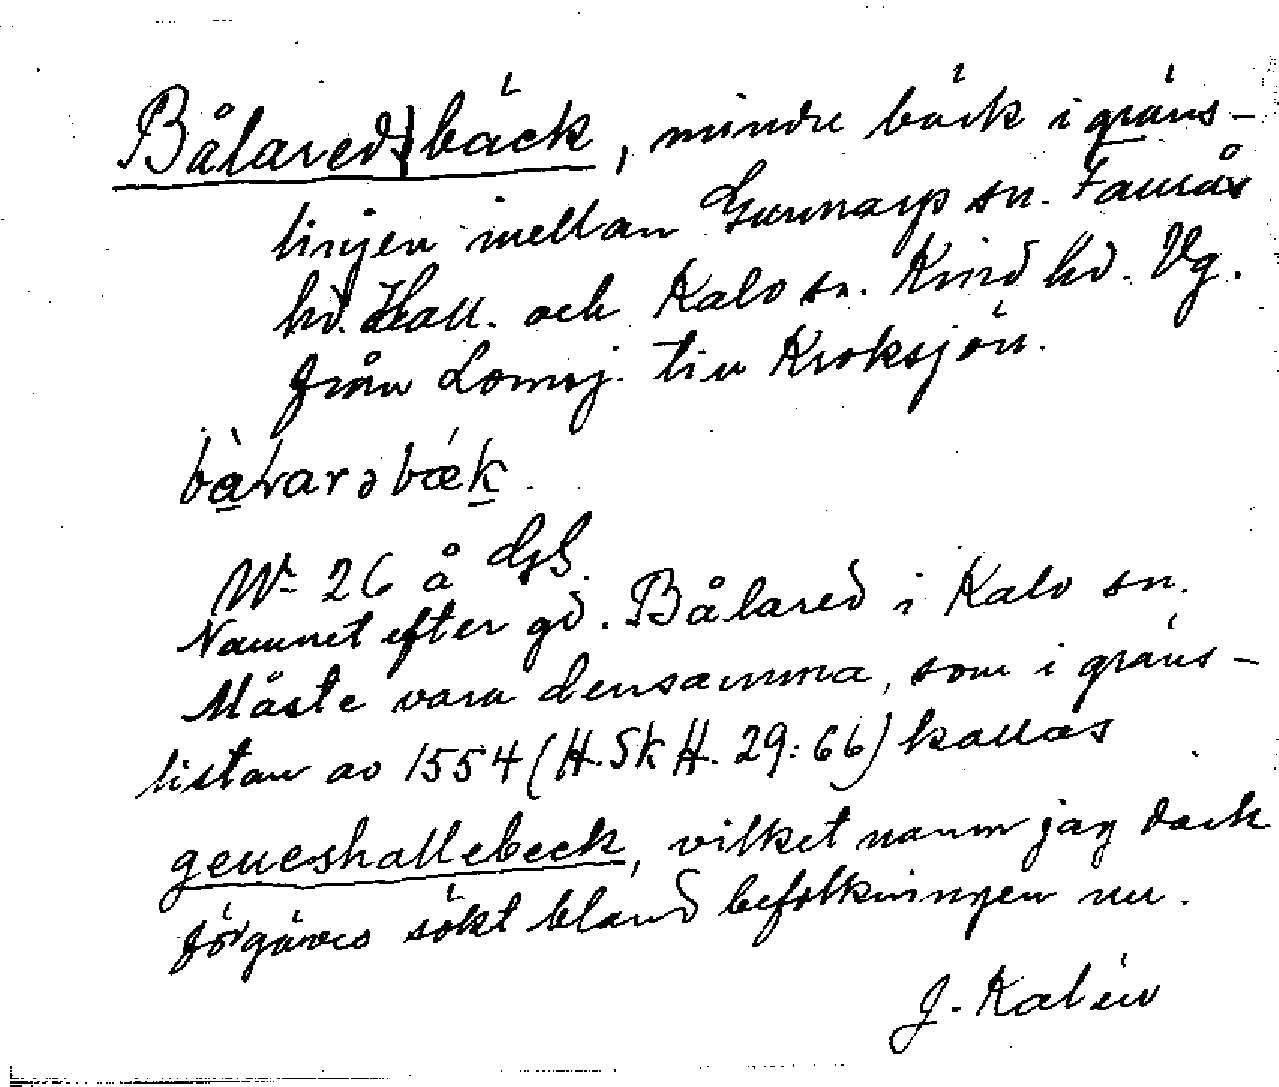 Bålareds|bäck, mindre bäck i gräns-
linjen mellan Gunnarp sn. Faurås
hd. Hall. och Kalv sn. Kind hd. Vg.
från Lomsj. till Kroksjön.
W- 26 å GS.
Namnet efter gd. Bålared i Kalv sn.
Måste vara densamma, som i gräns-
listan av 1554 (H.SkH. 29:66) kallas
geueshallebeck, vilket namn jag dock
förgäves sökt bland befolkningen nu.
J. Kalén